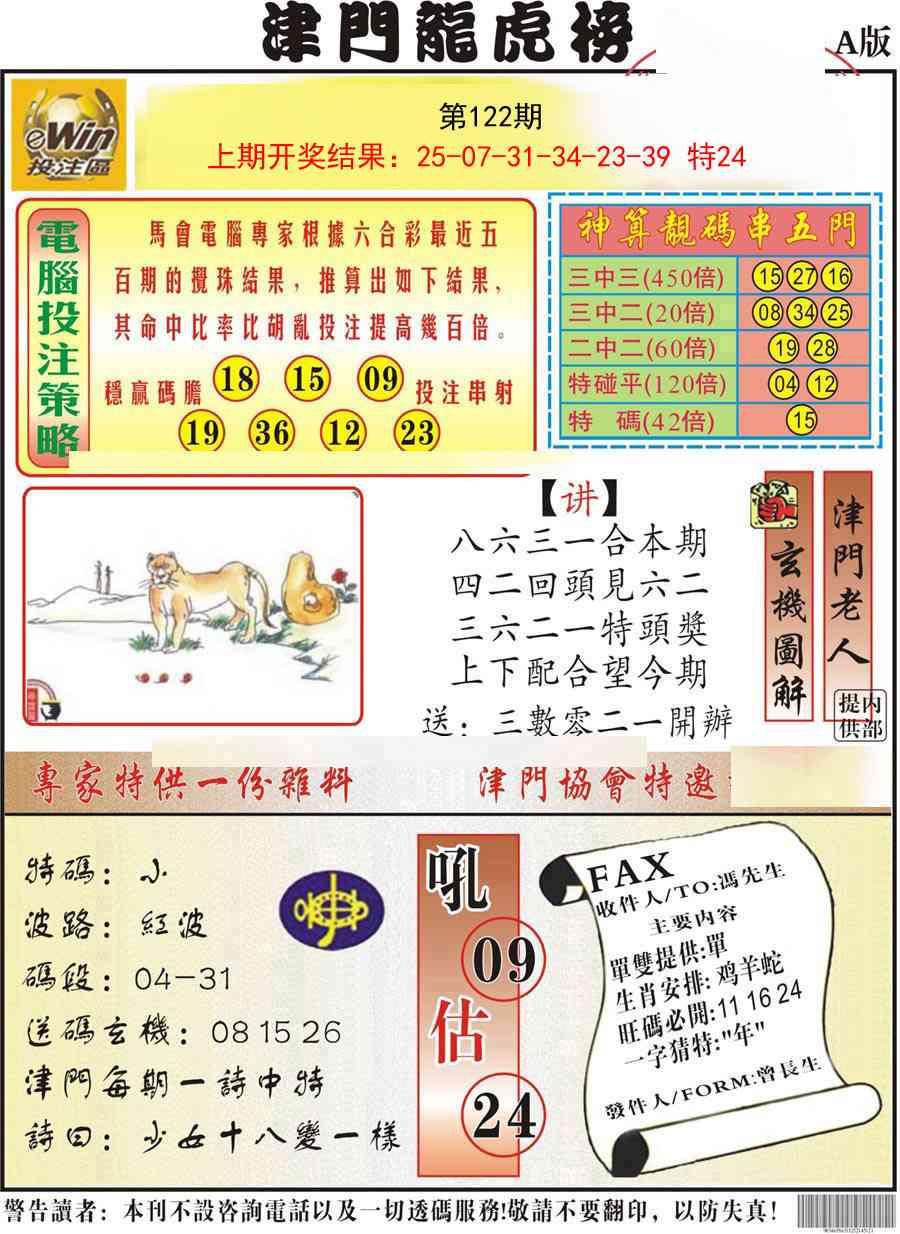 津門龍虎榜
A版
eWin
投注區
第122期
上期开奖结果：25-07-31-34-23-39 特24
電腦投注策略
馬會電腦專家根據六合彩最近五
百期的攪珠結果，推算出如下結果，
其命中比率比胡亂投注提高幾百倍。
穩贏碼膽 18 15 09 投注串射
19 36 12 23
神算靚碼串五門
三中三(450倍) 15 27 16
三中二(20倍) 08 34 25
二中二(60倍) 19 28
特碰平(120倍) 04 12
特 碼(42倍) 15
【讲】
八六三一合本期
四二回頭見六二
三六二一特頭獎
上下配合望今期
送：三數零二一開辦
玄機圖解
津門老人
内部提供
專家特供一份雜料
津門協會特邀
特碼：小
波路：紅波
碼段：04-31
送碼玄機：08 15 26
津門每期一詩中特
詩曰：少女十八變一樣
吼
09
估
24
FAX
收件人/TO:馮先生
主要内容
單雙提供:單
生肖安排:鸡羊蛇
旺碼必開:11 16 24
一字猜特:"年"
發件人/FORM:曾長生
警告讀者：本刊不設咨詢電話以及一切透碼服務!敬請不要翻印，以防失真!